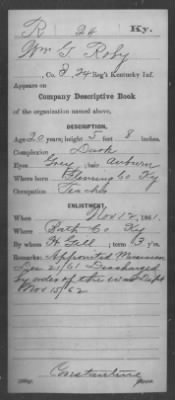 R 24 Ky.
Wm G. Roby
, Co. I, 24 Reg't Kentucky Inf.
Appears on
Company Descriptive Book
of the organization named above.
DESCRIPTION.
Age 20 years; height 5 feet 8 inches.
Complexion Dark
Eyes Grey; hair Auburn
Where born Fleming Co Ky
Occupation Teacher
ENLISTMENT.
When Nov 12, 1861.
Where Bath Co Ky
By whom H Gill; term 3 y'rs.
Remarks: Appointed Musician
Dec 21/61 Discharged
by order of the War Dept
Nov 15/62
Constantine
Copyist.